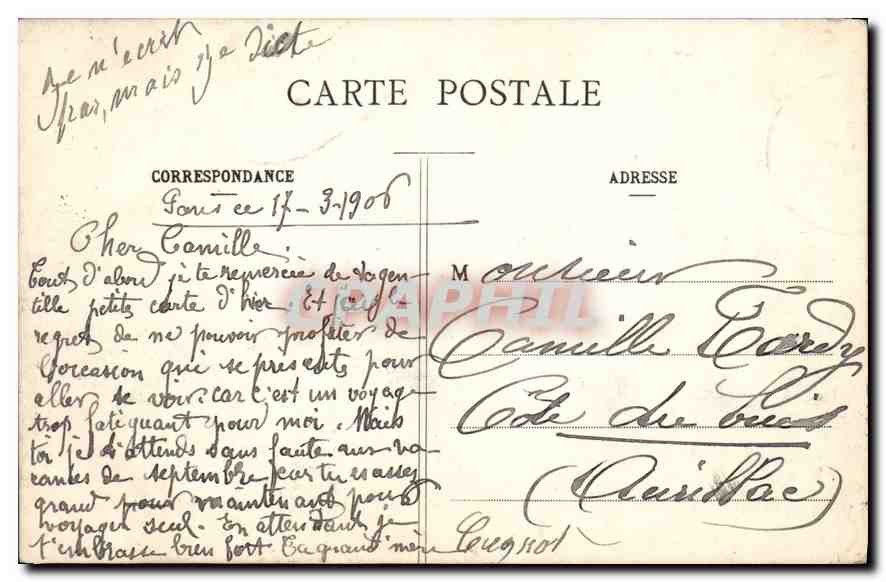 Je n'ecrit
pas, mais je dicte
CARTE POSTALE
CORRESPONDANCE
ADRESSE
Paris ce 17-3-1906
Cher Camille.
Tout d'abord je te remercie de ta gen
tille petite carte d'hier. Et j'ai le
regret de ne pouvoir profiter de
l'occasion qui se presente pour
aller se voir. car c'est un voyage
trop fatiguant pour moi. Mais
toi je t'attends sans faute aux va
cances de septembre car tu es assez
grand pour maintenant pour
voyager seul. En attendant je
t'embrasse bien fort. Ta grand'mère
Cugnot
Monsieur
Camille Tardy
Côte du buis
(Aurillac)
CPAPHIL